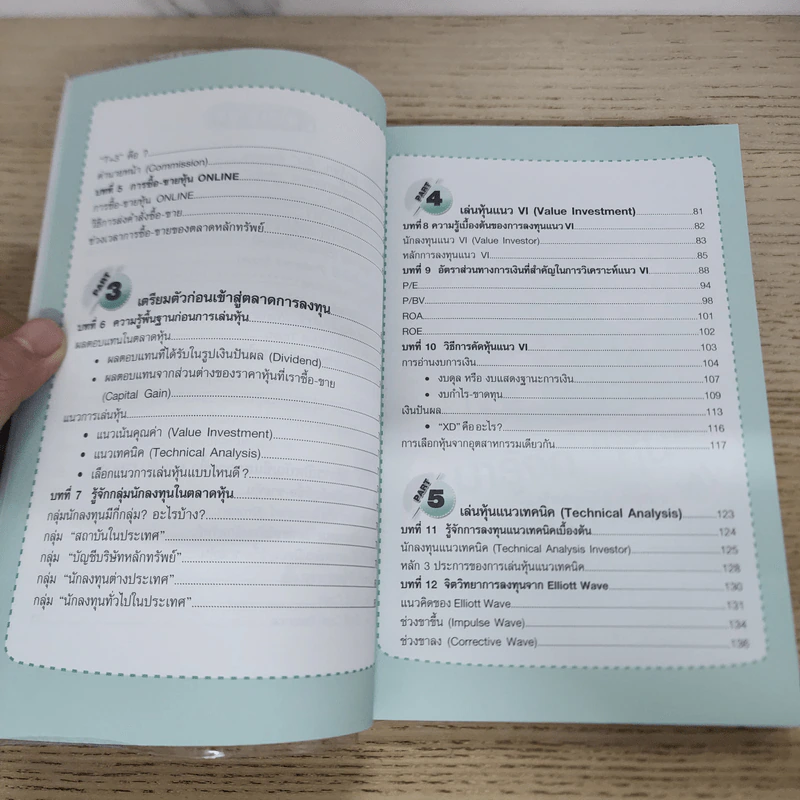 "T+3" คือ ?
ค่านายหน้า (Commission)
บทที่ 5 การซื้อ-ขายหุ้น ONLINE
การซื้อ-ขายหุ้น ONLINE
วิธีการส่งคำสั่งซื้อ-ขาย
ช่วงเวลาการซื้อ-ขายของตลาดหลักทรัพย์
PART 3 เตรียมตัวก่อนเข้าสู่ตลาดการลงทุน
บทที่ 6 ความรู้พื้นฐานก่อนการเล่นหุ้น
ผลตอบแทนในตลาดหุ้น
• ผลตอบแทนที่ได้รับในรูปเงินปันผล (Dividend)
• ผลตอบแทนจากส่วนต่างของราคาหุ้นที่เราซื้อ-ขาย
(Capital Gain)
แนวการเล่นหุ้น
• แนวเน้นคุณค่า (Value Investment)
• แนวเทคนิค (Technical Analysis)
• เลือกแนวการเล่นหุ้นแบบไหนดี ?
บทที่ 7 รู้จักกลุ่มนักลงทุนในตลาดหุ้น
กลุ่มนักลงทุนมีกี่กลุ่ม? อะไรบ้าง?
กลุ่ม "สถาบันในประเทศ"
กลุ่ม "บัญชีบริษัทหลักทรัพย์"
กลุ่ม "นักลงทุนต่างประเทศ"
กลุ่ม "นักลงทุนทั่วไปในประเทศ"
PART 4 เล่นหุ้นแนว VI (Value Investment) 81
บทที่ 8 ความรู้เบื้องต้นของการลงทุนแนว VI 82
นักลงทุนแนว VI (Value Investor) 83
หลักการลงทุนแนว VI 85
บทที่ 9 อัตราส่วนทางการเงินที่สำคัญในการวิเคราะห์แนว VI 88
P/E 94
P/BV 98
ROA 101
ROE 102
บทที่ 10 วิธีการคัดหุ้นแนว VI 103
การอ่านงบการเงิน 104
• งบดุล หรือ งบแสดงฐานะการเงิน 107
• งบกำไร-ขาดทุน 109
เงินปันผล 113
• "XD" คือ อะไร? 116
การเลือกหุ้นจากอุตสาหกรรมเดียวกัน 117
PART 5 เล่นหุ้นแนวเทคนิค (Technical Analysis) 123
บทที่ 11 รู้จักการลงทุนแนวเทคนิคเบื้องต้น 124
นักลงทุนแนวเทคนิค (Technical Analysis Investor) 125
หลัก 3 ประการของการเล่นหุ้นแนวเทคนิค 128
บทที่ 12 จิตวิทยาการลงทุนจาก Elliott Wave 130
แนวคิดของ Elliott Wave 131
ช่วงขาขึ้น (Impulse Wave) 134
ช่วงขาลง (Corrective Wave) 136